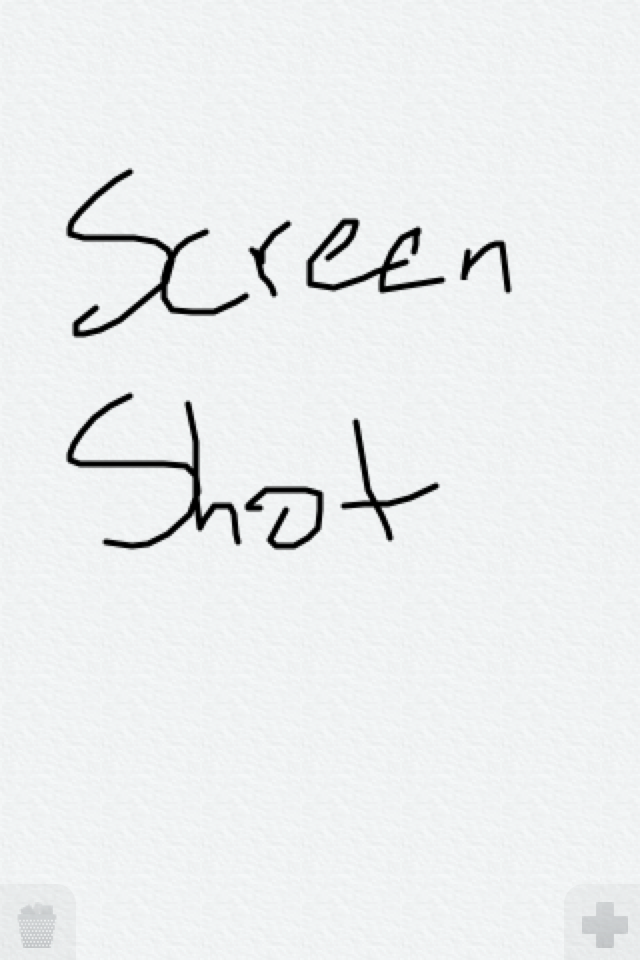 Screen
Shot